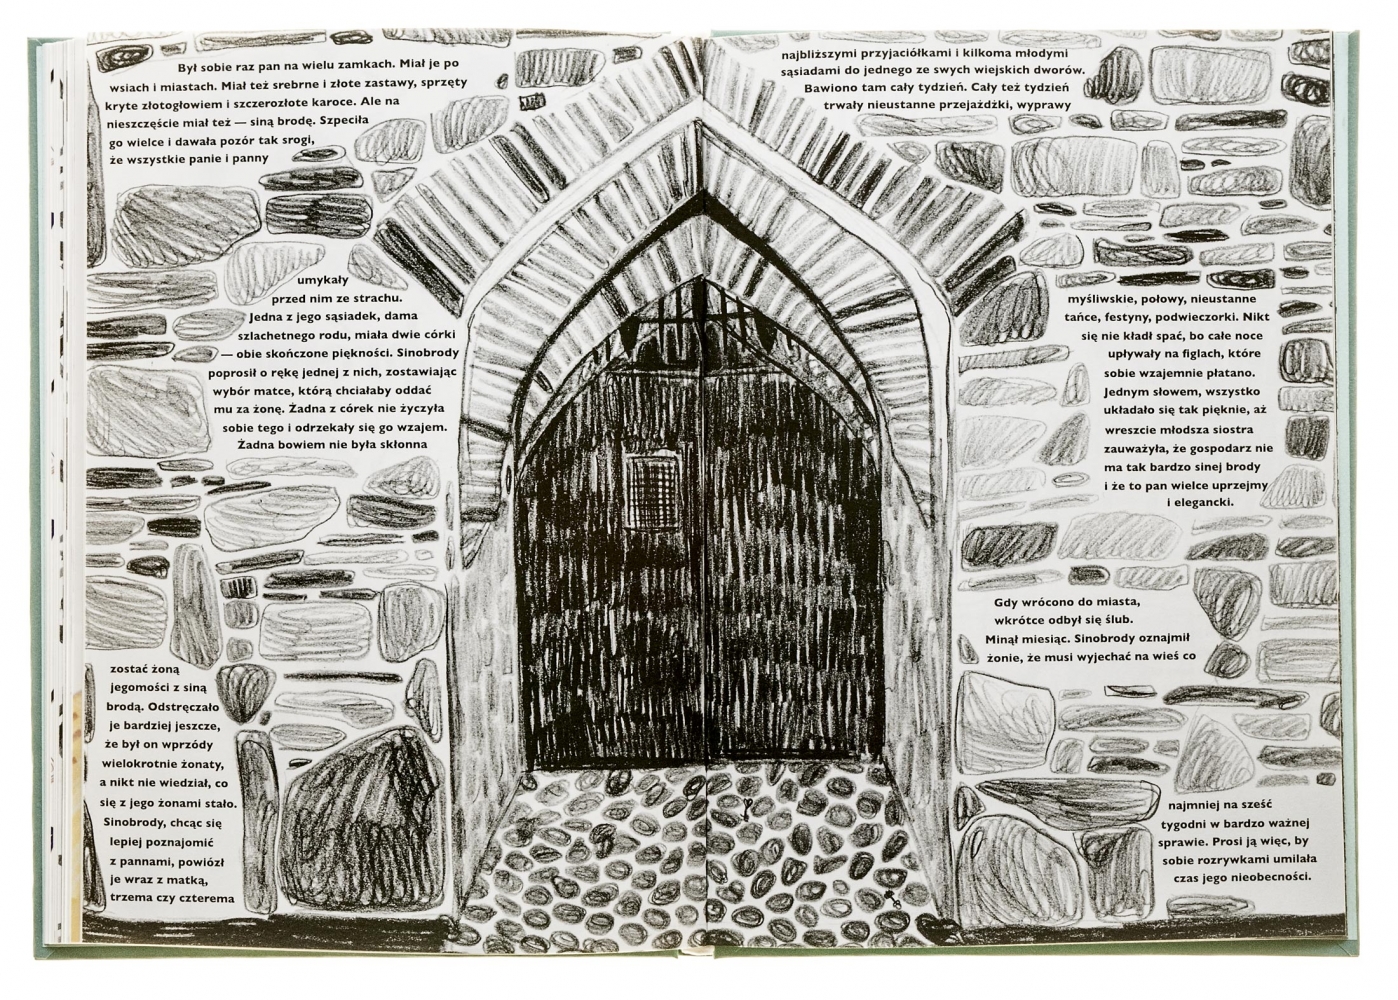 Był sobie raz pan na wielu zamkach. Miał je po
wsiach i miastach. Miał też srebrne i złote zastawy, sprzęty
kryte złotogłowiem i szczerozłote karoce. Ale na
nieszczęście miał też — siną brodę. Szpeciła
go wielce i dawała pozór tak srogi,
że wszystkie panie i panny
umykały
przed nim ze strachu.
Jedna z jego sąsiadek, dama
szlachetnego rodu, miała dwie córki
— obie skończone piękności. Sinobrody
poprosił o rękę jednej z nich, zostawiając
wybór matce, którą chciałaby oddać
mu za żonę. Żadna z córek nie życzyła
sobie tego i odrzekały się go wzajem.
Żadna bowiem nie była skłonna
zostać żoną
jegomości z siną
brodą. Odstręczało
je bardziej jeszcze,
że był on wprzódy
wielokrotnie żonaty,
a nikt nie wiedział, co
się z jego żonami stało.
Sinobrody, chcąc się
lepiej poznajomić
z pannami, powiózł
je wraz z matką,
trzema czy czterema
najbliższymi przyjaciółkami i kilkoma młodymi
sąsiadami do jednego ze swych wiejskich dworów.
Bawiono tam cały tydzień. Cały też tydzień
trwały nieustanne przejażdżki, wyprawy
myśliwskie, połowy, nieustanne
tańce, festyny, podwieczorki. Nikt
się nie kładł spać, bo całe noce
upływały na figlach, które
sobie wzajemnie płatano.
Jednym słowem, wszystko
układało się tak pięknie, aż
wreszcie młodsza siostra
zauważyła, że gospodarz nie
ma tak bardzo sinej brody
i że to pan wielce uprzejmy
i elegancki.
Gdy wrócono do miasta,
wkrótce odbył się ślub.
Minął miesiąc. Sinobrody oznajmił
żonie, że musi wyjechać na wieś co
najmniej na sześć
tygodni w bardzo ważnej
sprawie. Prosi ją więc, by
sobie rozrywkami umilała
czas jego nieobecności.